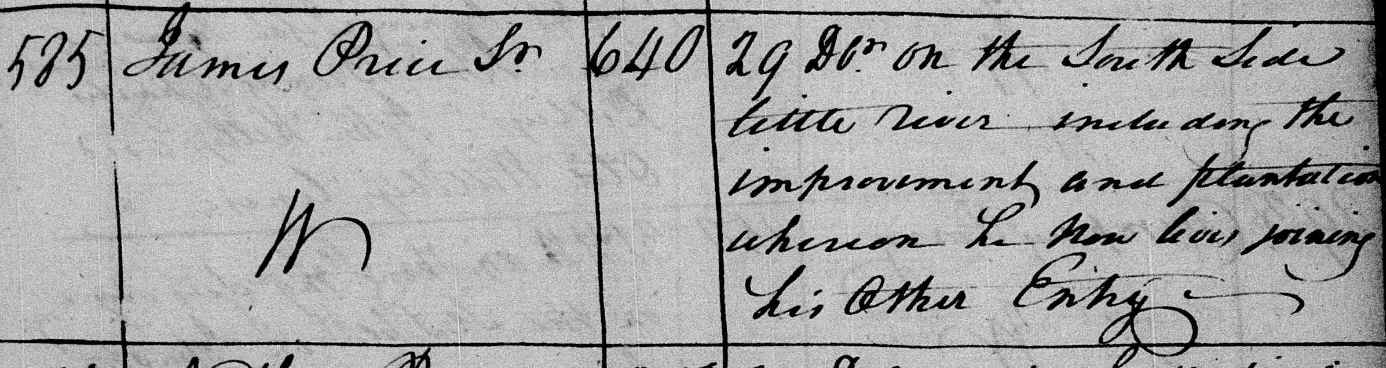 585 James Price Sr 640 29 Dbr. on the South Side
little river including the
improvement and plantation
W
whereon he Now lives joining
his Other Entry